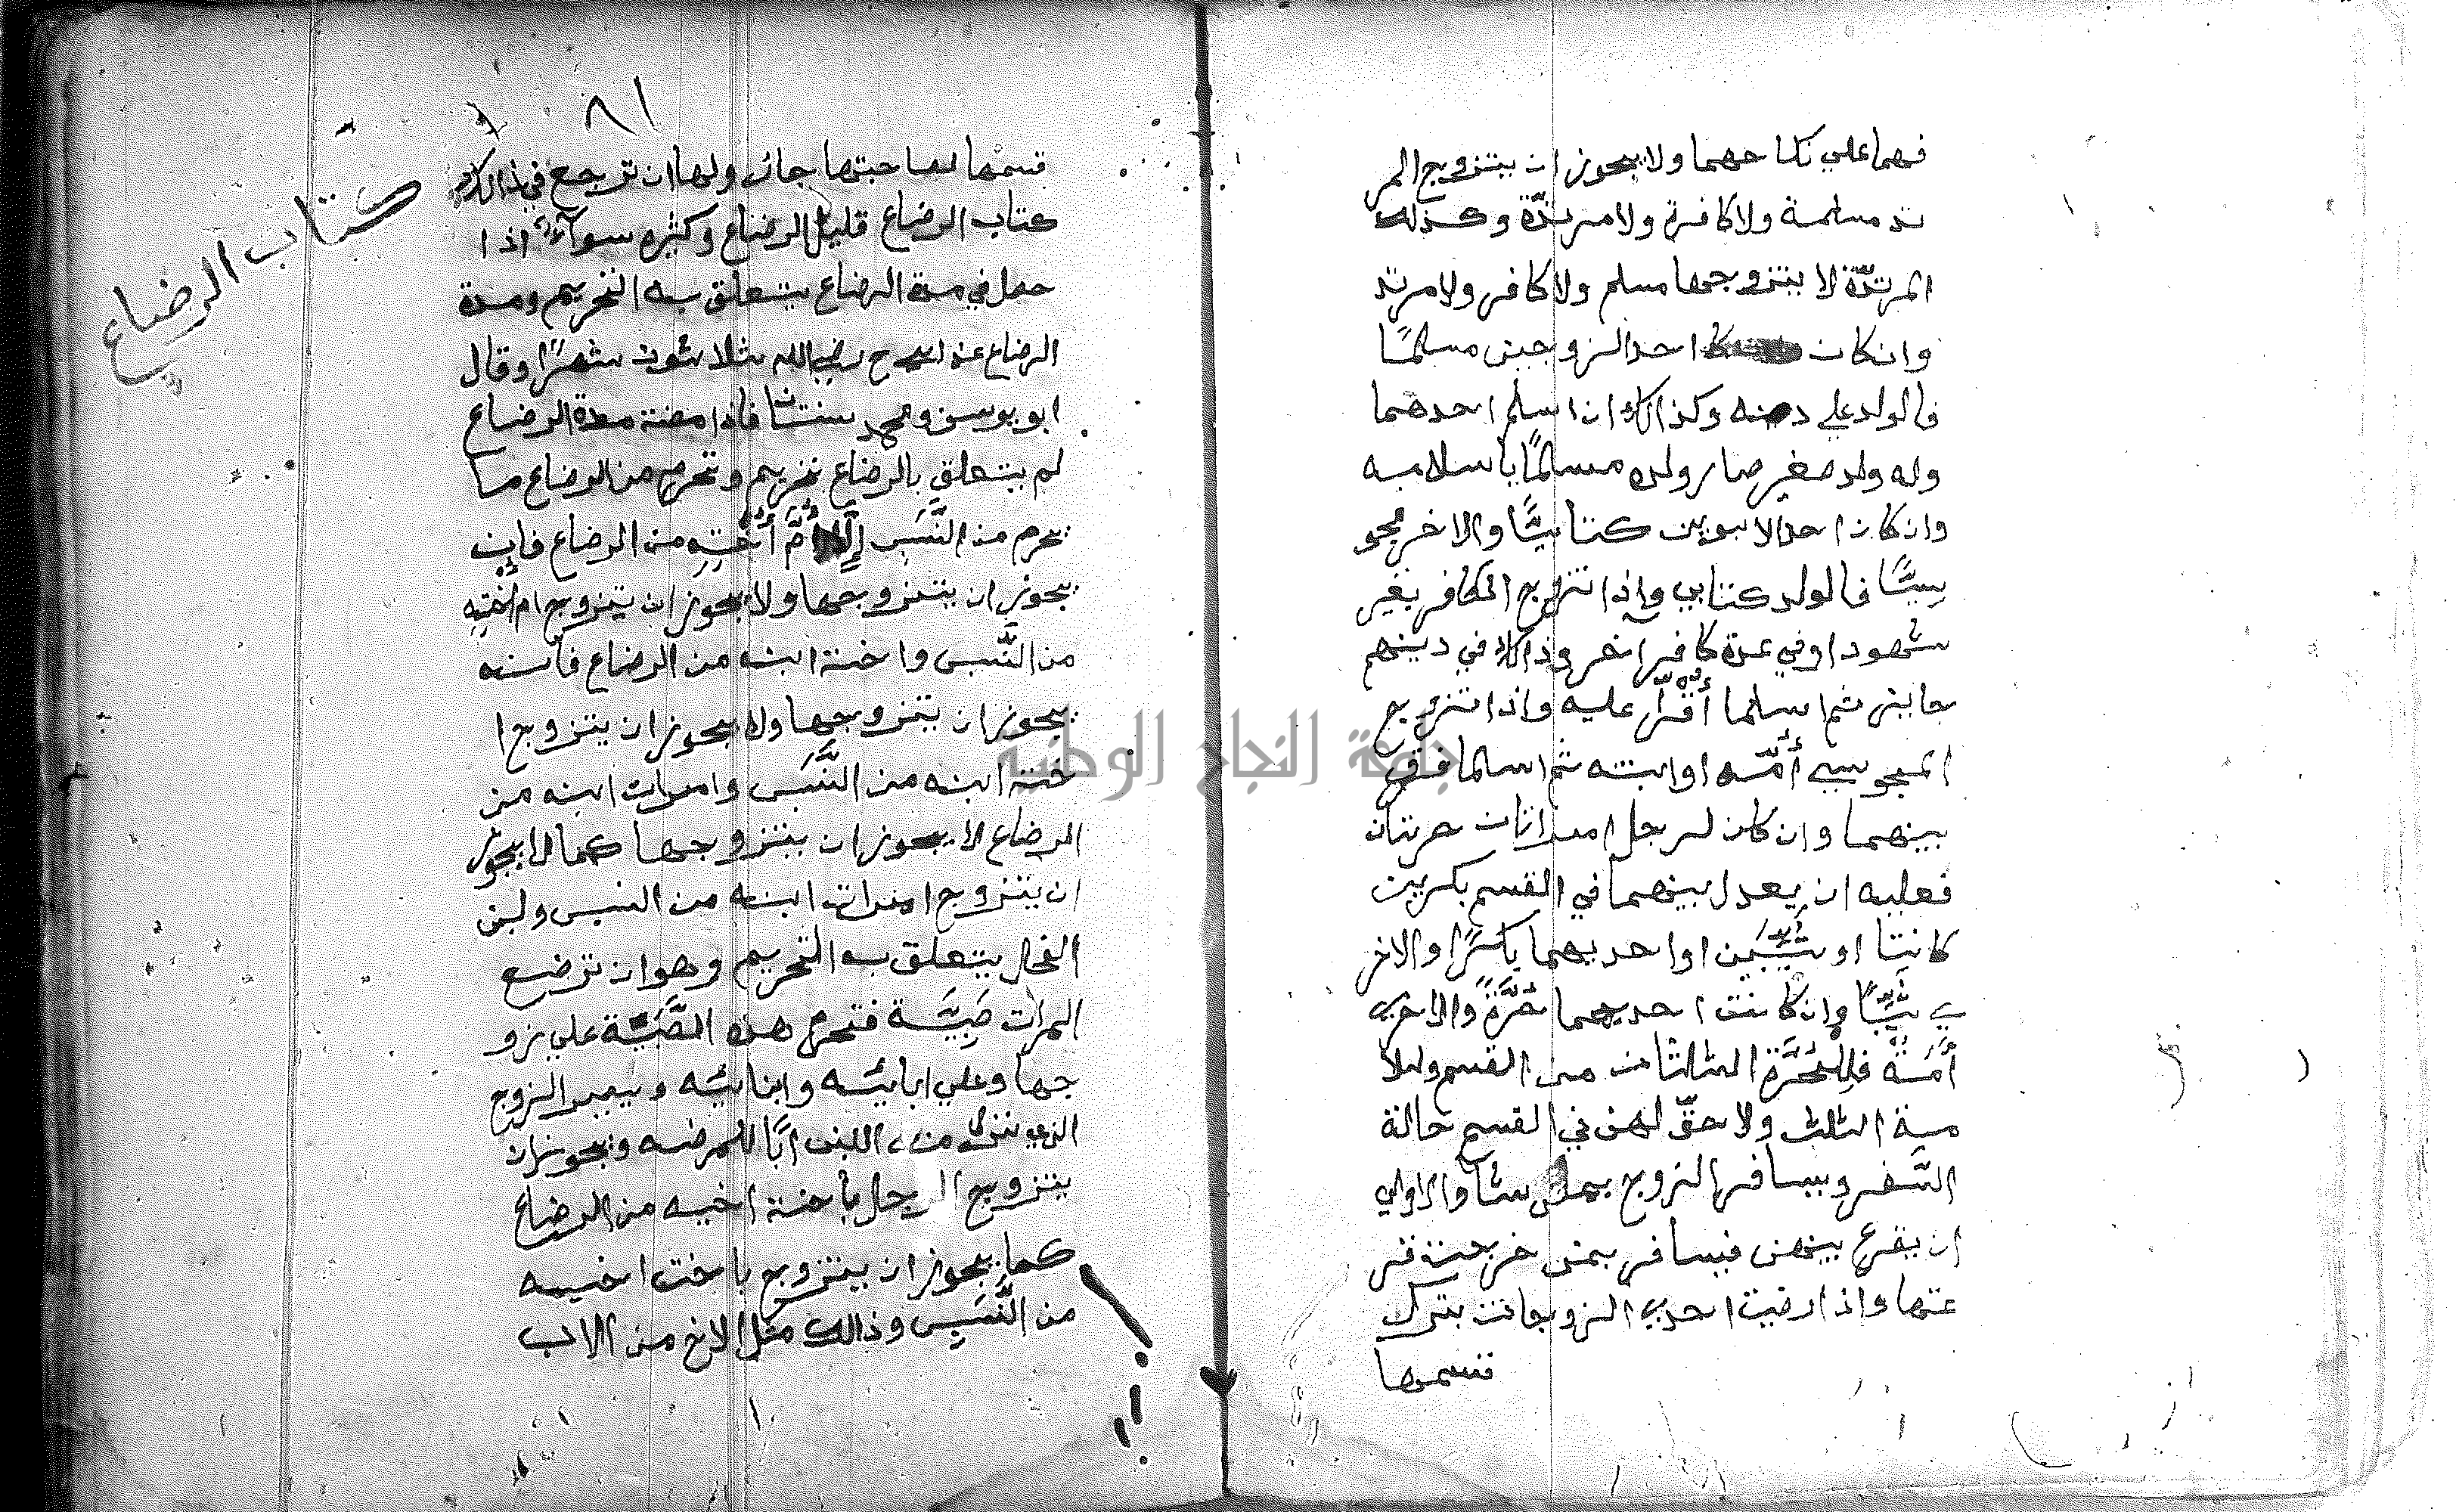 فهما علي نكاحهما ولا يجوز ان يتزوج المر
تد مسلمة ولا كافرة ولا مرتدّة وكذلك
المرتدّة لا يتزوجها مسلم ولا كافر ولا مرتد
وان كان احد الزوجين مسلمًا
فالولد علي دينه وكذالك ان اسلم احدهما
وله ولد صغير صار ولده مسلمًا باسلامه
وان كان احد الابوين كتابيًّا والاخر مجو
سيًّا فالولد كتابي واذا تزوج الكافر بغير
شهود او في عدة كافر اخر وذالك في دينهم
جايز ثم اسلما أُقْرّا عليه واذا تزوج
المجوسي أُمّه او ابنته ثم اسلما فرق
بينهما وان كان لرجل امراتان حرتان
فعليه ان يعدل بينهما في القسم بكرين
كانتا او ثيّبين او احديهما باكرًا والاخر
ي ثيّبًا وان كانت احديهما حُرَّةً والاخري
أَمَةً فللحُرَّة الثلثان من القسم وللا
مة الثلث ولا حقّ لهن في القسم حالة
السَّفر ويسافر الزوج بمن شا والاولي
ان يقرع بينهن فيسافر بمن خرجت قر
عتها واذا رضيت احدي الزوجات بترك
قسمها
٨١
قسمها لصاحبتها جاز ولها ان ترجع في ذالك
كتاب الرضاع
كتاب الرضاع قليل الرضاع وكثيره سوآء اذا
حصل في مدة الرضاع يتعلق به التحريم ومدة
الرضاع عند ابي ح رضي الله ثلاثون شهرًا وقال
ابو يوسف ومحمد سنتان فاذا مضت مدة الرضاع
لم يتعلق بالرضاع تحريم وتحرم من الرضاع ما
يحرم من النَّسَب إلّا أُمَّ أُخْتِهِ من الرضاع فان
يجوز ان يتزوجها ولا يجوز ان يتزوج ام اخته
من النَّسب واخت ابنه من الرضاع فانه
يجوز ان يتزوجها ولا يجوز ان يتزوج ا
خت ابنه من النَّسَب وامرات ابنه من
الرضاع لا يجوز ان يتزوجها كما لا يجوز
ان يتزوج امرات ابنه من النسب ولبن
الفحل يتعلق به التحريم وهو ان ترضع
المرات صَبِيَّة فتحرم هذه الصَّبِيَّة علي زو
جها وعلي ابايئه وابنايئه ويصير الزوج
الذي نزل منه اللبن ابًا للمرضعه ويجوز ان
يتزوج الرجل باخت اخيه من الرضاع
كما يجوز ان يتزوج باخت اخيه
من النَّسَبِ وذالك مثل الاخ من الاب
جامعة النجاح الوطنية